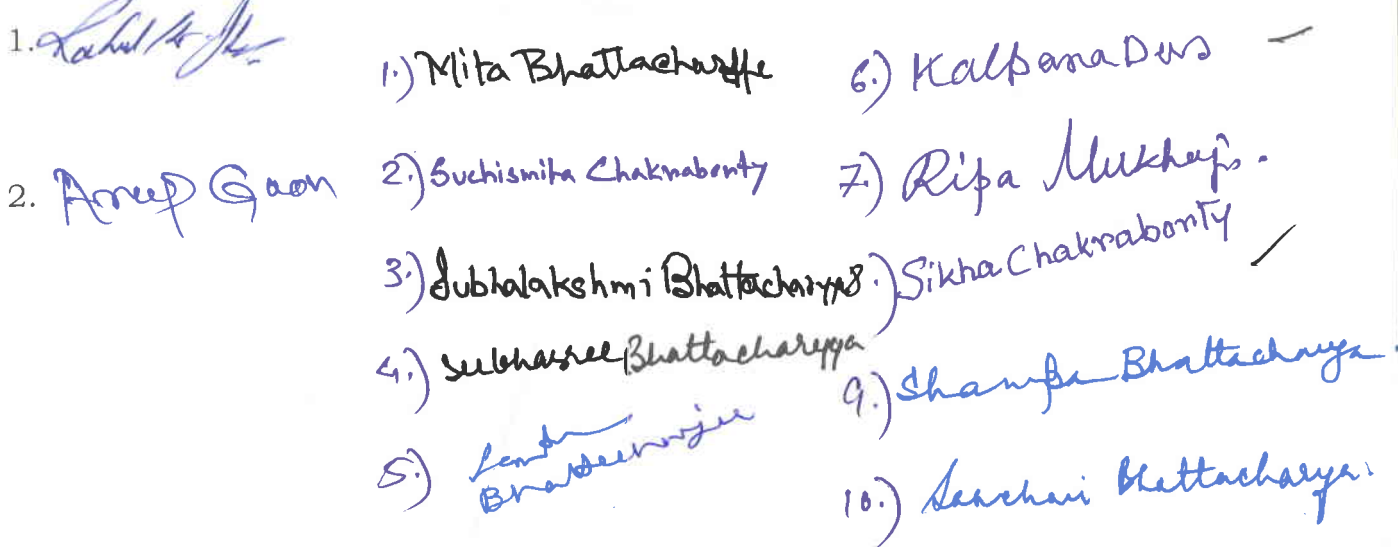 1. Rahul Kr Jha
2. Anup Gaon
1.) Mita Bhattacharjee
2.) Suchismita Chakraborty
3.) Subhalakshmi Bhattacharyya
4.) Subhasree Bhattacharyya
5.)
Bhattacharjee
6.) Kalpana Das
7.) Ripa Mukherji.
8.) Sikha Chakraborty
9.) Shampa Bhattacharya.
10.) Sanchari Bhattacharya.